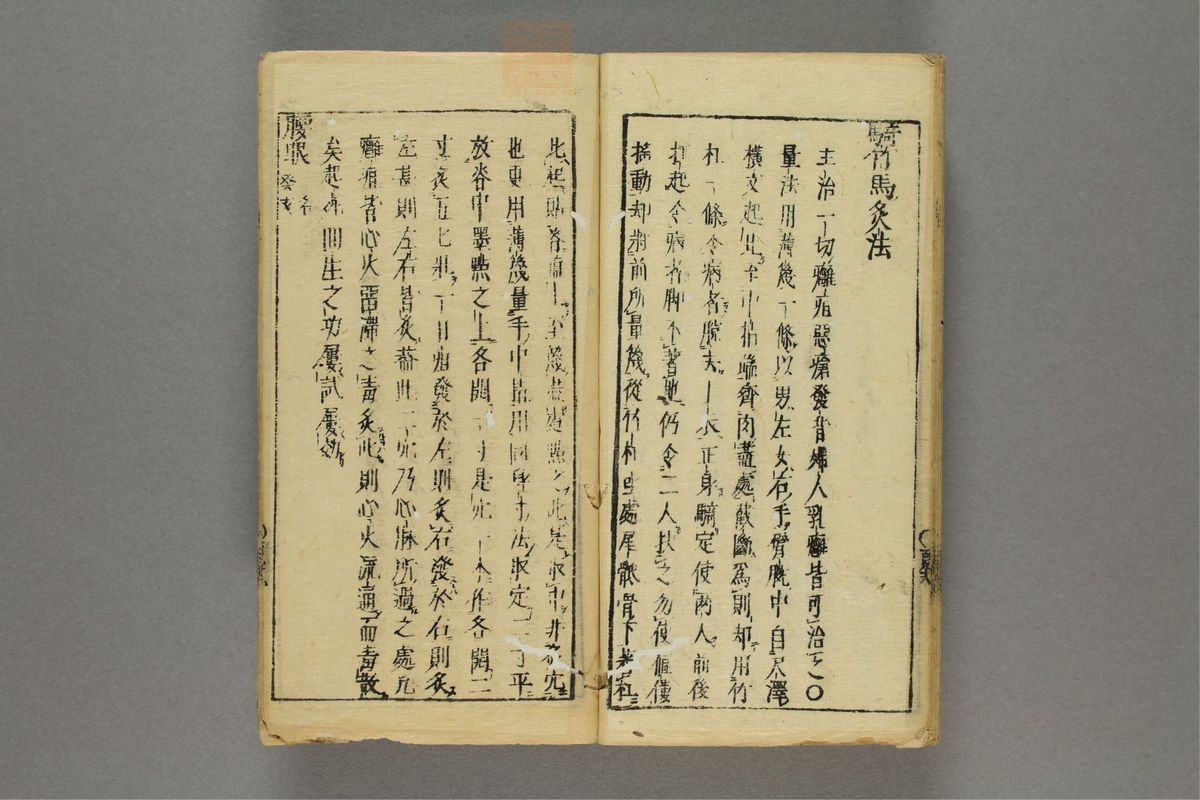 騎竹馬灸法
主治一切癰疽惡瘡發背婦人乳癰皆可治之〇
量法用薄篾一條以男左女右手臂腕中自尺澤
橫文起比至中指端齊肉盡處截斷為則却用竹
杠一條令病者脫去上衣正身騎定使兩人前後
扛起令病者脚不著地仍令二人扶之勿使傴僂
搖動却將前所量篾從竹杠坐處尾骶骨下著杠
比起貼脊直上至篾盡處點之此是取中非灸穴
也更用薄篾量手中指用同身寸法取定二寸平
放脊中墨點之上各開一寸是穴一本作各開二
寸灸五七壯一曰疽發於左則灸右發於右則灸
左甚則左右皆灸蓋此二穴乃心脉所過之處凡
癰疽皆心火留滯之毒灸此則心火流通而毒散
矣起死回生之功屢試屢效
腰眼